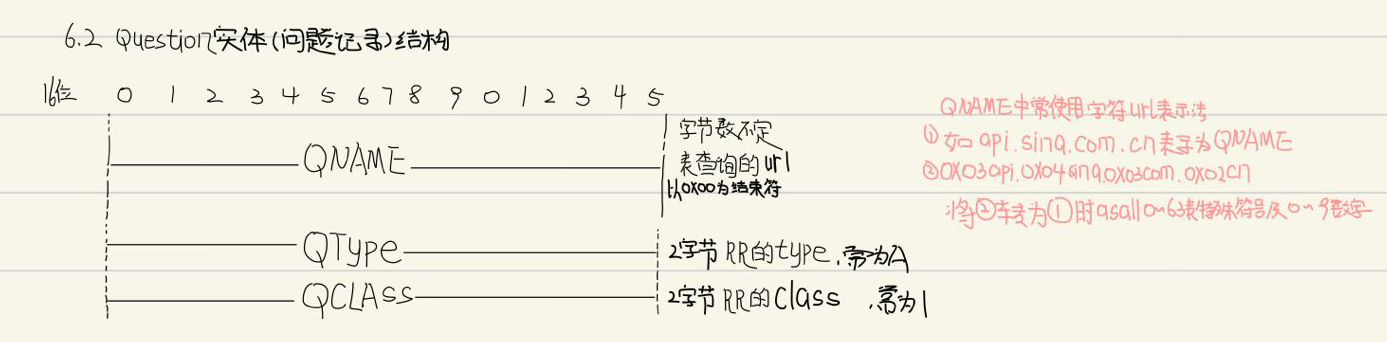 6.2 Question实体(问题记录)结构
16位 0 1 2 3 4 5 6 7 8 9 0 1 2 3 4 5
QNAME
字节数不定
表查询的url
以0x00为结束符
QType
2字节 RR的type,常为A
QCLASS
2字节 RR的class ,常为1
QNAME中常使用字符url表示法
①如api.sina.com.cn表示为QNAME
②0x03api.0x04sina.0x03com.0x02cn
将②转为①时asall0~63表特殊符号及0~9数字